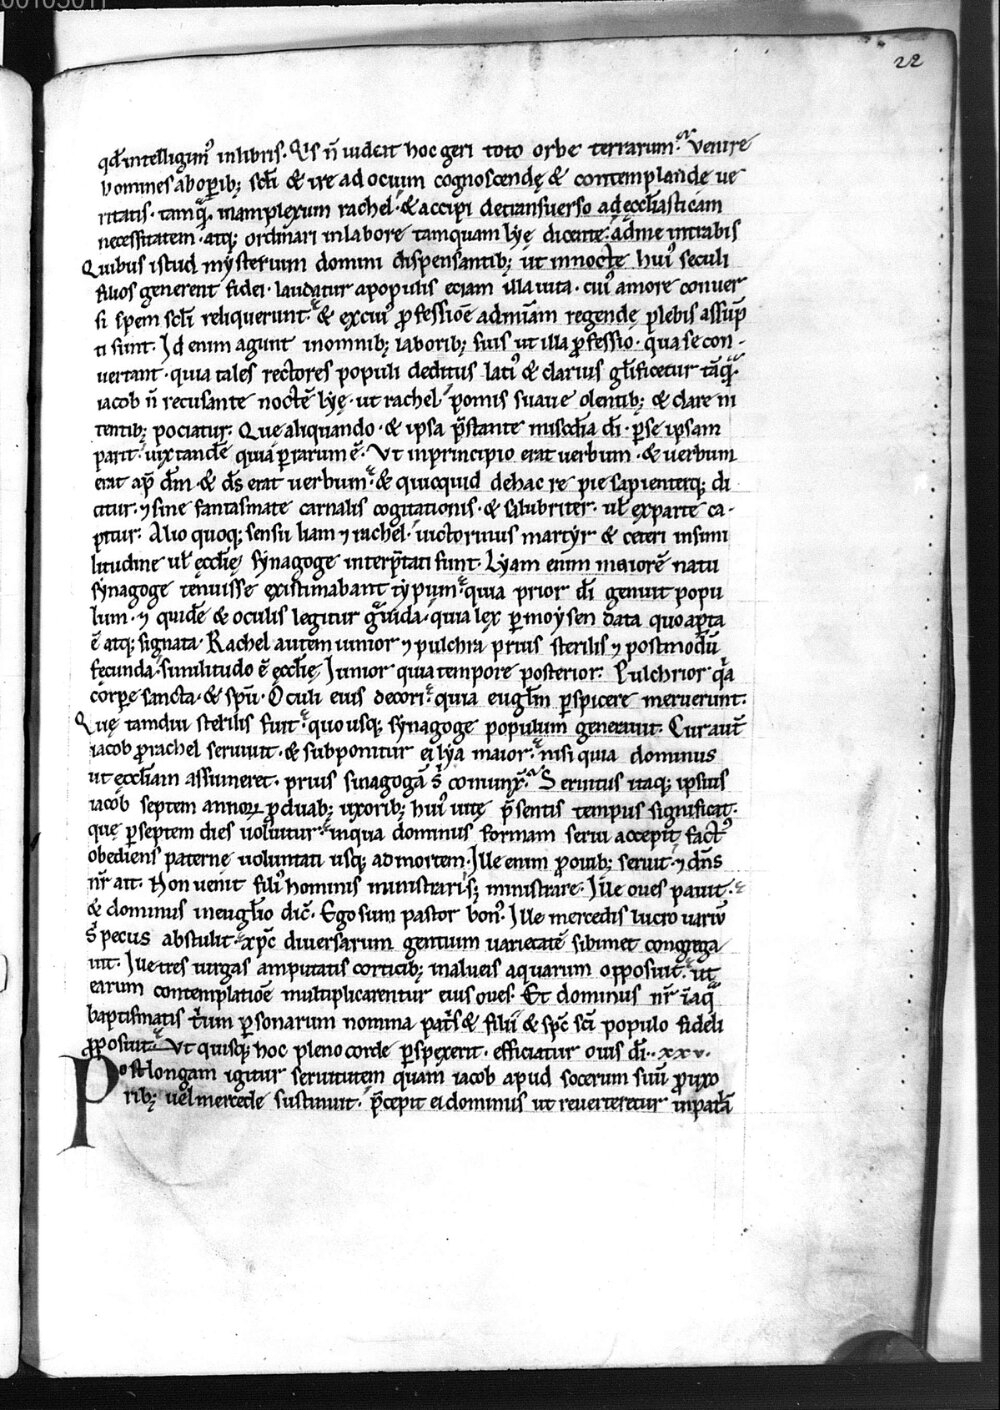 00103011
22
qđ intelligim᾽ in libris. Q̇s n̄ uidcit hoc geri toto orbe terrarum. Venire
homines ab oꝑib; scłi & ire ad ocium cognoscendę & contemplande ue
ritatis. tamq̃. in amplexum rachel. & accipi de transuerso ad ecclesiasticam
necessitatem. atq; ordinari in labore tamquam lyę dicente. ad me intrabis
Quibus istud mysterium domini dispensantib; ut in nocte hui᾽ seculi
filios generent fidei. laudatur a populis eciam illa uita. cui᾽ amore conuer
si spem scłi reliquerunt. & ex cui᾽ ꝓfessiōe ad mīam regendę plebis assūp
ti sunt. Id enim agunt in omnib; laborib; suis ut illa ꝓfessio. qua se con-
uertant. quia tales rectores populi deditus lati᾽ & clarius głificetur tāq̃.
iacob n̄ recusante noctē lyę. ut rachel pomis suaue olentib; & clare ni
tentib; pociatur. Que aliquando. & ipsa p̄stante miscđia đi. ꝑ se ipsam
parit. uix tandē quia ꝑrarum ē. Ut in principio erat uerbum. & uerbum
erat ap̄ đm. & đs erat uerbum. & quicquid de hac re pie sapienterq; di
citur. ⁊ sine fantasmate carnalis cogitationis. & salubriter. uł ex parte ca-
pitur. Alio quoq; sensu liam ⁊ rachel. uictorinus martyr & ceteri in simi
litudine uł ęcclię synagoge interp̄tati sunt. Lyam enim maiorē natu
synagoge tenuisse existimabant typum. quia prior đi genuit popu
lum. ⁊ quidē & oculis legitur g̃uida. quia lex ꝑ moysen data quoaꝑta
ē atq; signata. Rachel autem iunior ⁊ pulchra prius sterilis ⁊ postmodū
fecunda. similitudo ē ęcclię. Iunior quia tempore posterior. Pulchrior q̃a
corpe sancta. & spū. Oculi eius decori. quia euglm ꝑspicere meruerunt.
Quę tamdiu sterilis fuit. quousq; synagoge populum generauit. Cur aut̄
iacob ꝓ rachel seruiuit. & subponitur ei lya maior. nisi quia dominus
ut ęccliam assumeret. prius sinagogā s̄ comunx̄. Seruitus itaq; ipsius
iacob septem annoꝝ ꝓ duab; uxorib; hui᾽ uitę p̄sentis tempus significat.
quę ꝑ septem dies uoluitur. in qua dominus formam serui accepit fact᾽
obediens paterne uoluntati usq; ad mortem. Ille enim ꝓ ouib; seruit. ⁊ dn̄s
nr̄ ait. Non uenit fili᾽ hominis ministrari s; ministrare. Ille oues pauit.
& dominus in euglio dic̄. Ego sum pastor bon᾽. Ille mercedis lucro uariū
s̄ pecus abstulit. xp̄c diuersarum gentium uarietatē sibimet congrega
uit. Ille tres uirgas amputatis corticib; in alueis aquarum opposuit. ut
earum contemplatiōe multiplicarentur eius oues. Et dominus nr̄ in aq̃
baptismatis t̄um ꝑsonarum nomina pat̄s & filii & sp̄c sc̄i populo fideli
ꝓposuit. Ut quisq; hoc pleno corde ꝑspexerit. efficiatur ouis đi. xxv.
Post longam igitur seruitutem quam iacob apud socerum suū ꝓ uxo
rib; uel mercede sustinuit. p̄cepit ei dominus ut reuerteretur in pat̄ā